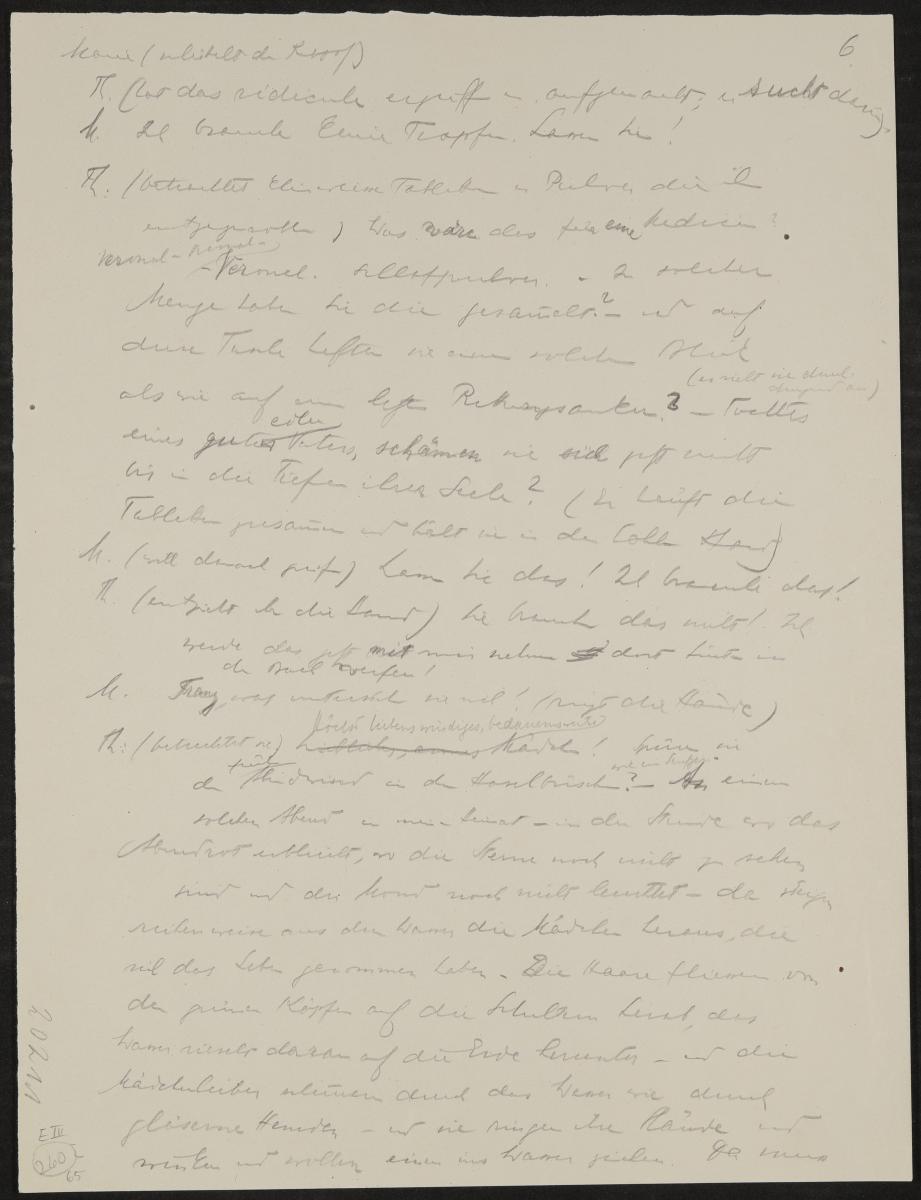 6
Marie (schüttelt den Kopf)
Th. (hat das ridicule ergriff u. aufgemacht, er sucht darin)
M. Ich brauche keine Tropfen. Lassen Sie!
Th. (betrachtet Tabletten u Pulver die ihr
entgegenrollen) Was wäre das für eine Medicin?
Veronal-
-Veronal. Schlafpulver. - In solcher
Menge haben Sie die gesammelt? - und auf
diese Tasche heften sie einen solchen Blick
(er sieht sie durchdringend an)
als wie auf einen letzten Rettungsanker? - Tochter
edlen
eines guten Vaters, schämen sie sich jetzt nicht
bis in die Tiefen ihrer Seele? (Er häuft die
Tabletten zusammen und hält sie in der hohlen Hand)
M. (will danach greifen) Lassen Sie das! Ich brauche das!
Th. (entzieht ihr die Hand) Sie brauchen das nicht! Ich
werde das jetzt mit mir nehmen dort hinten in
den Bach werfen!
M. was untersteht sie sich! (ringt die Hände)
Höchst liebenswürdiges, bedauernswertes
Th: (betrachtet sie) Mädchen! Hören sie
den Windwind in den Haselbüschen? - An einem
solchen Abend in meiner Heimat - in der Stunde wo das
Abendrot erbleicht, wo die Sterne noch nicht zu sehen
sind und der Mond noch nicht leuchtet - da steigen
reihenweise aus dem Wasser die Mädchen heraus, die
sich das Leben genommen haben - Die Haare fliessen von
den grünen Köpfen auf die Schultern herab, das
Wasser rieselt daran auf die Erde herunter - und die
Mädchenleiber schimmern durch das Wasser wie durch
gläserne Hemden - und sie ringen ihre Hände und
winken und wollen einen ins Wasser ziehen. Da muss
E III
260
65